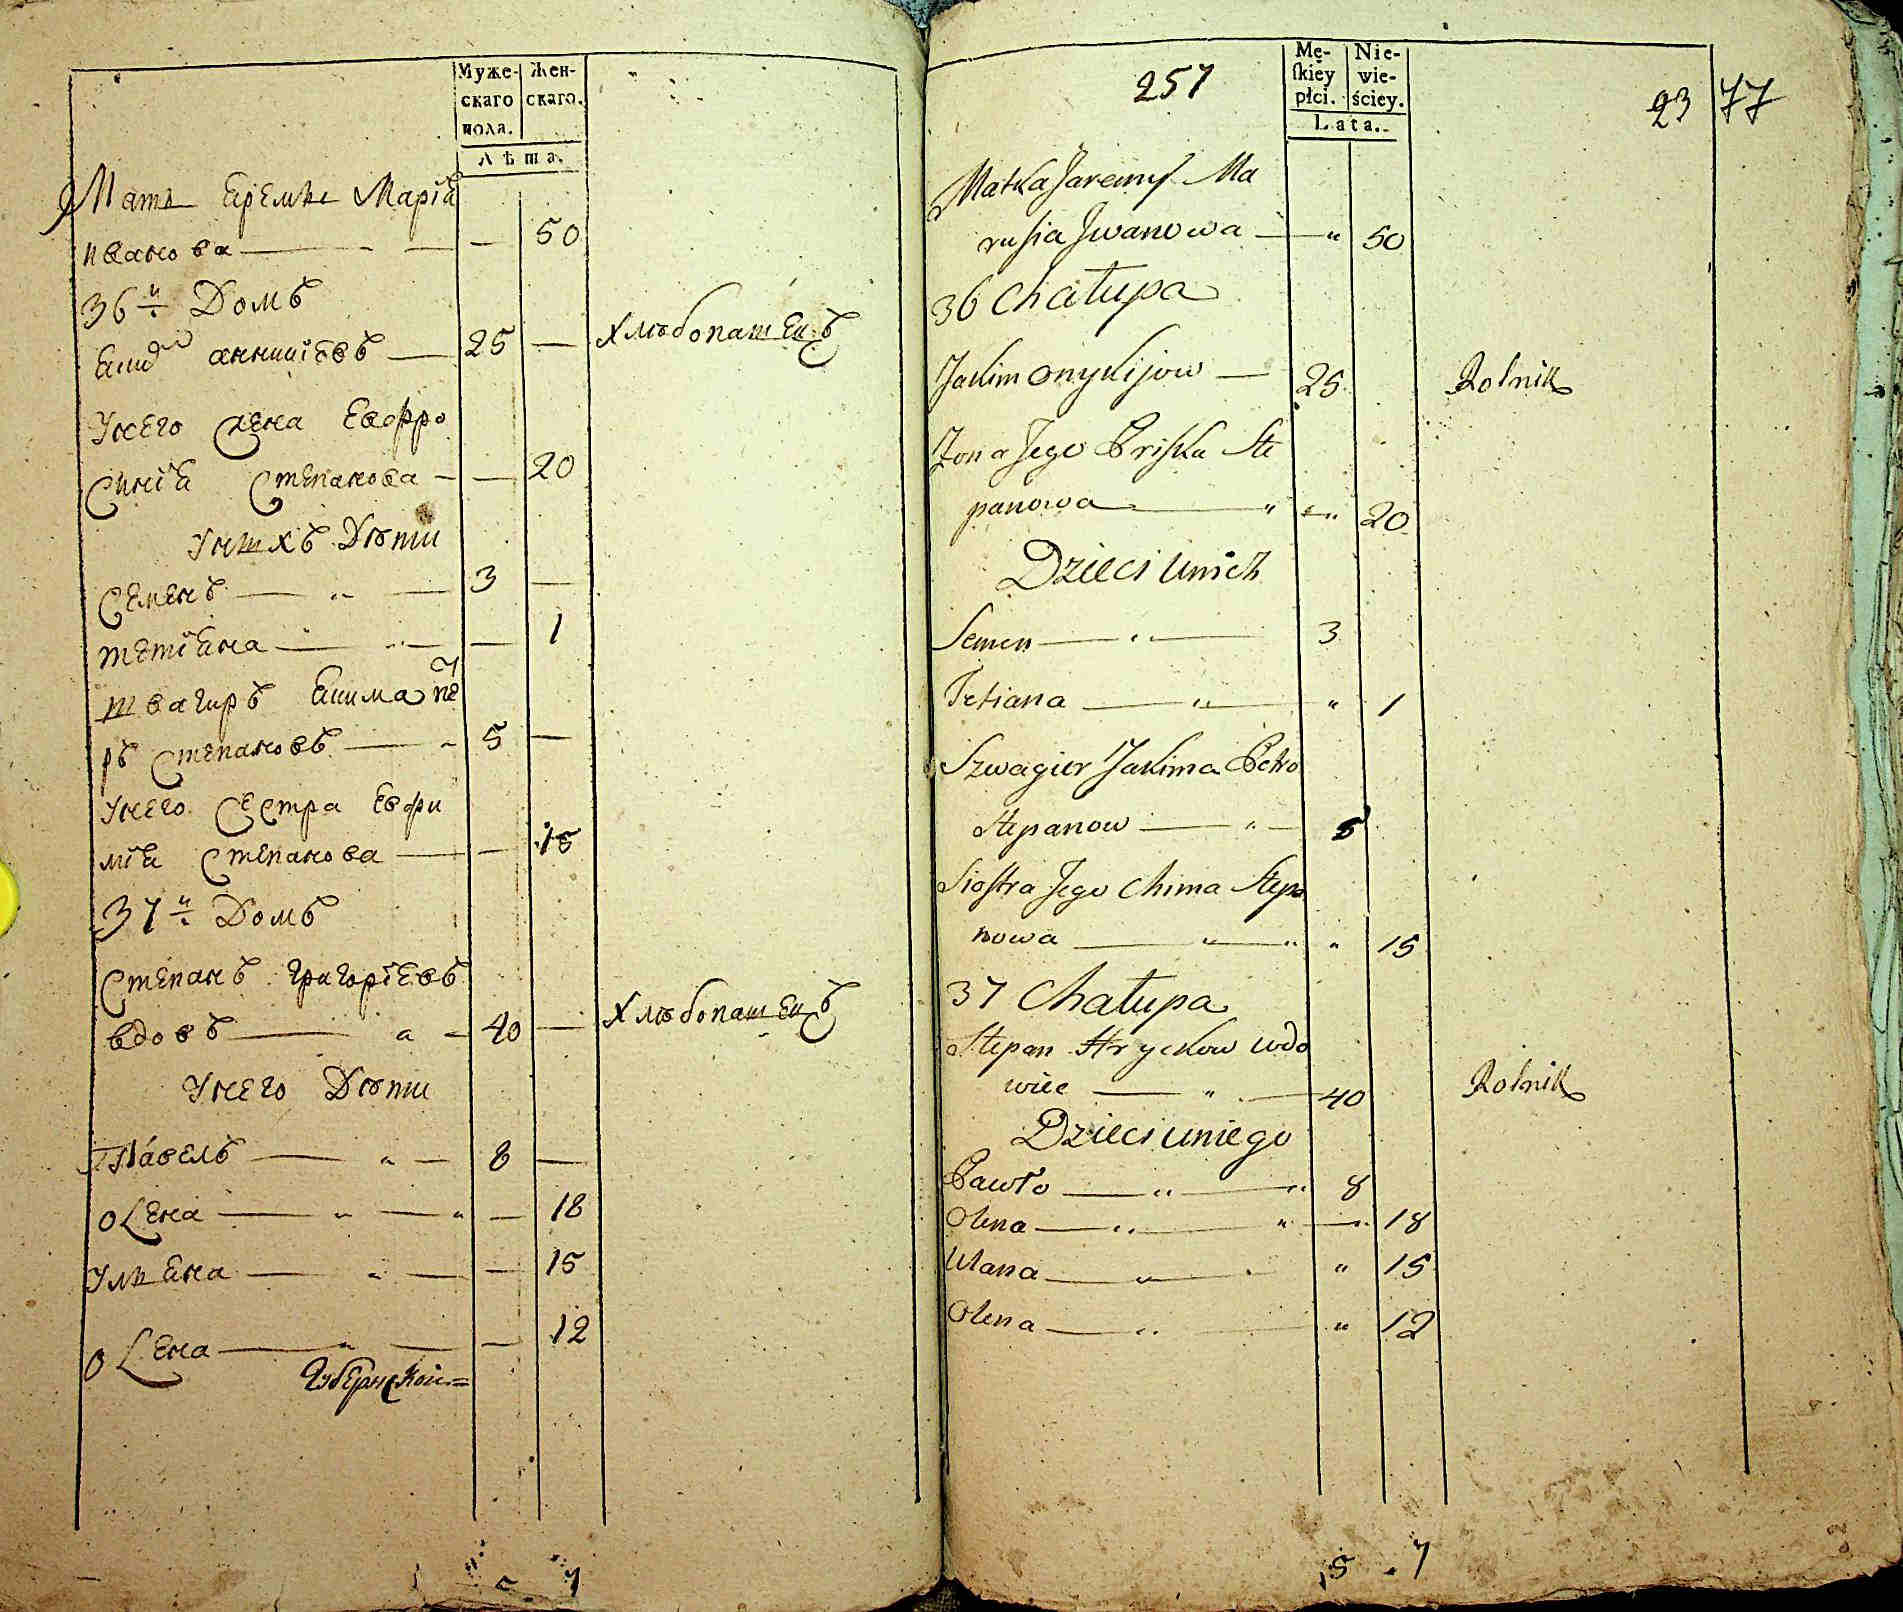 Муже-
скаго
пола.
Жен-
скаго.
Лѣта.
Мать Еремы Марія
иванова — — 50
36й Домъ
аникіевъ — 25 — хлѣбопашецъ
Унего жена Евфро
синія Степанова — — 20
Унихъ Дѣти
Семенъ — 3 —
тетіана — — 1
твагиръ Екима Пе
ръ Степановъ — 5 —
Унего Сестра Евфи
мія Степанова — — 15
37й Домъ
Степанъ григоріевъ
вдовъ — 40 — хлѣбопашецъ
Унего Дѣти
Павелъ — 8 —
Олена — — 18
Ульяна — — 15
Олена — — 12
Губернской=
5 7
257
Mę-
skiey
płci.
Nie-
wie-
ściey.
Lata.
23 77
Matka Jaremy Ma
rusia Jwanowa — „ 50
36 Chałupa
Jakim Onykijow — 25 Rolnik
Żona Jego Priska Ste
panowa — „ 20
Dzieci unich
Semen — „ — 3
Tetiana — „ — „ 1
Szwagier Jakima Petro
Stepanow — „ — 5
Siostra Jego Chima Stepa
nowa — „ „ 15
37 Chałupa
Stepan Hryckow wdo
wiec — „ — 40 Rolnik
Dzieci uniego
Pawło — „ — „ 8
Olena — „ — „ 18
Ulana — „ „ 15
Olena — „ — „ 12
5 . 7